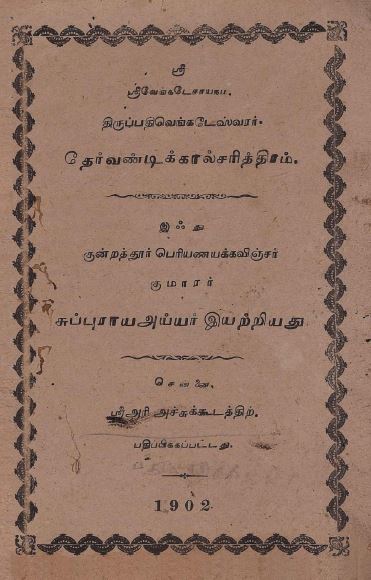 ஸ்ரீ
ஸ்ரீவேங்கடேசாயநம.
திருப்பதிவெங்கடேஸ்வரர்.
தேர்வண்டிக்கால்சரித்திரம்.
இஃது
குன்றத்தூர் பெரியணயக்கவிஞ்சர்
குமாரர்
சுப்புராயஅய்யர் இயற்றியது
சென்னை,
ஸ்ரீஅரி அச்சுக்கூடத்திற்
பதிப்பிக்கப்பட்டது.
1902